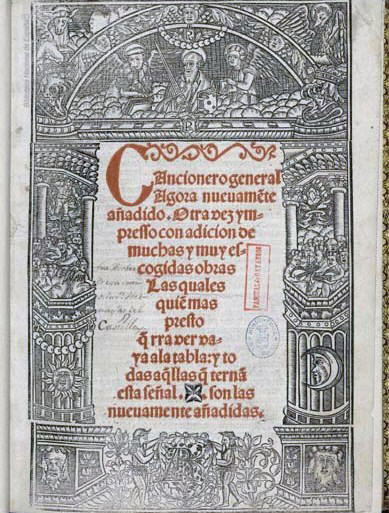 Cancionero general
Agora nueuamẽte
añadido. Otra vez ym-
presso con adicion de
muchas y muy es-
cogidas obras
Las quales
quiẽ mas
presto
q̃rra ver va-
ya ala tabla: y to
das aq̃llas q̃ ternã
esta señal. ✠. son las
nueuamente añadidas.
Castilla